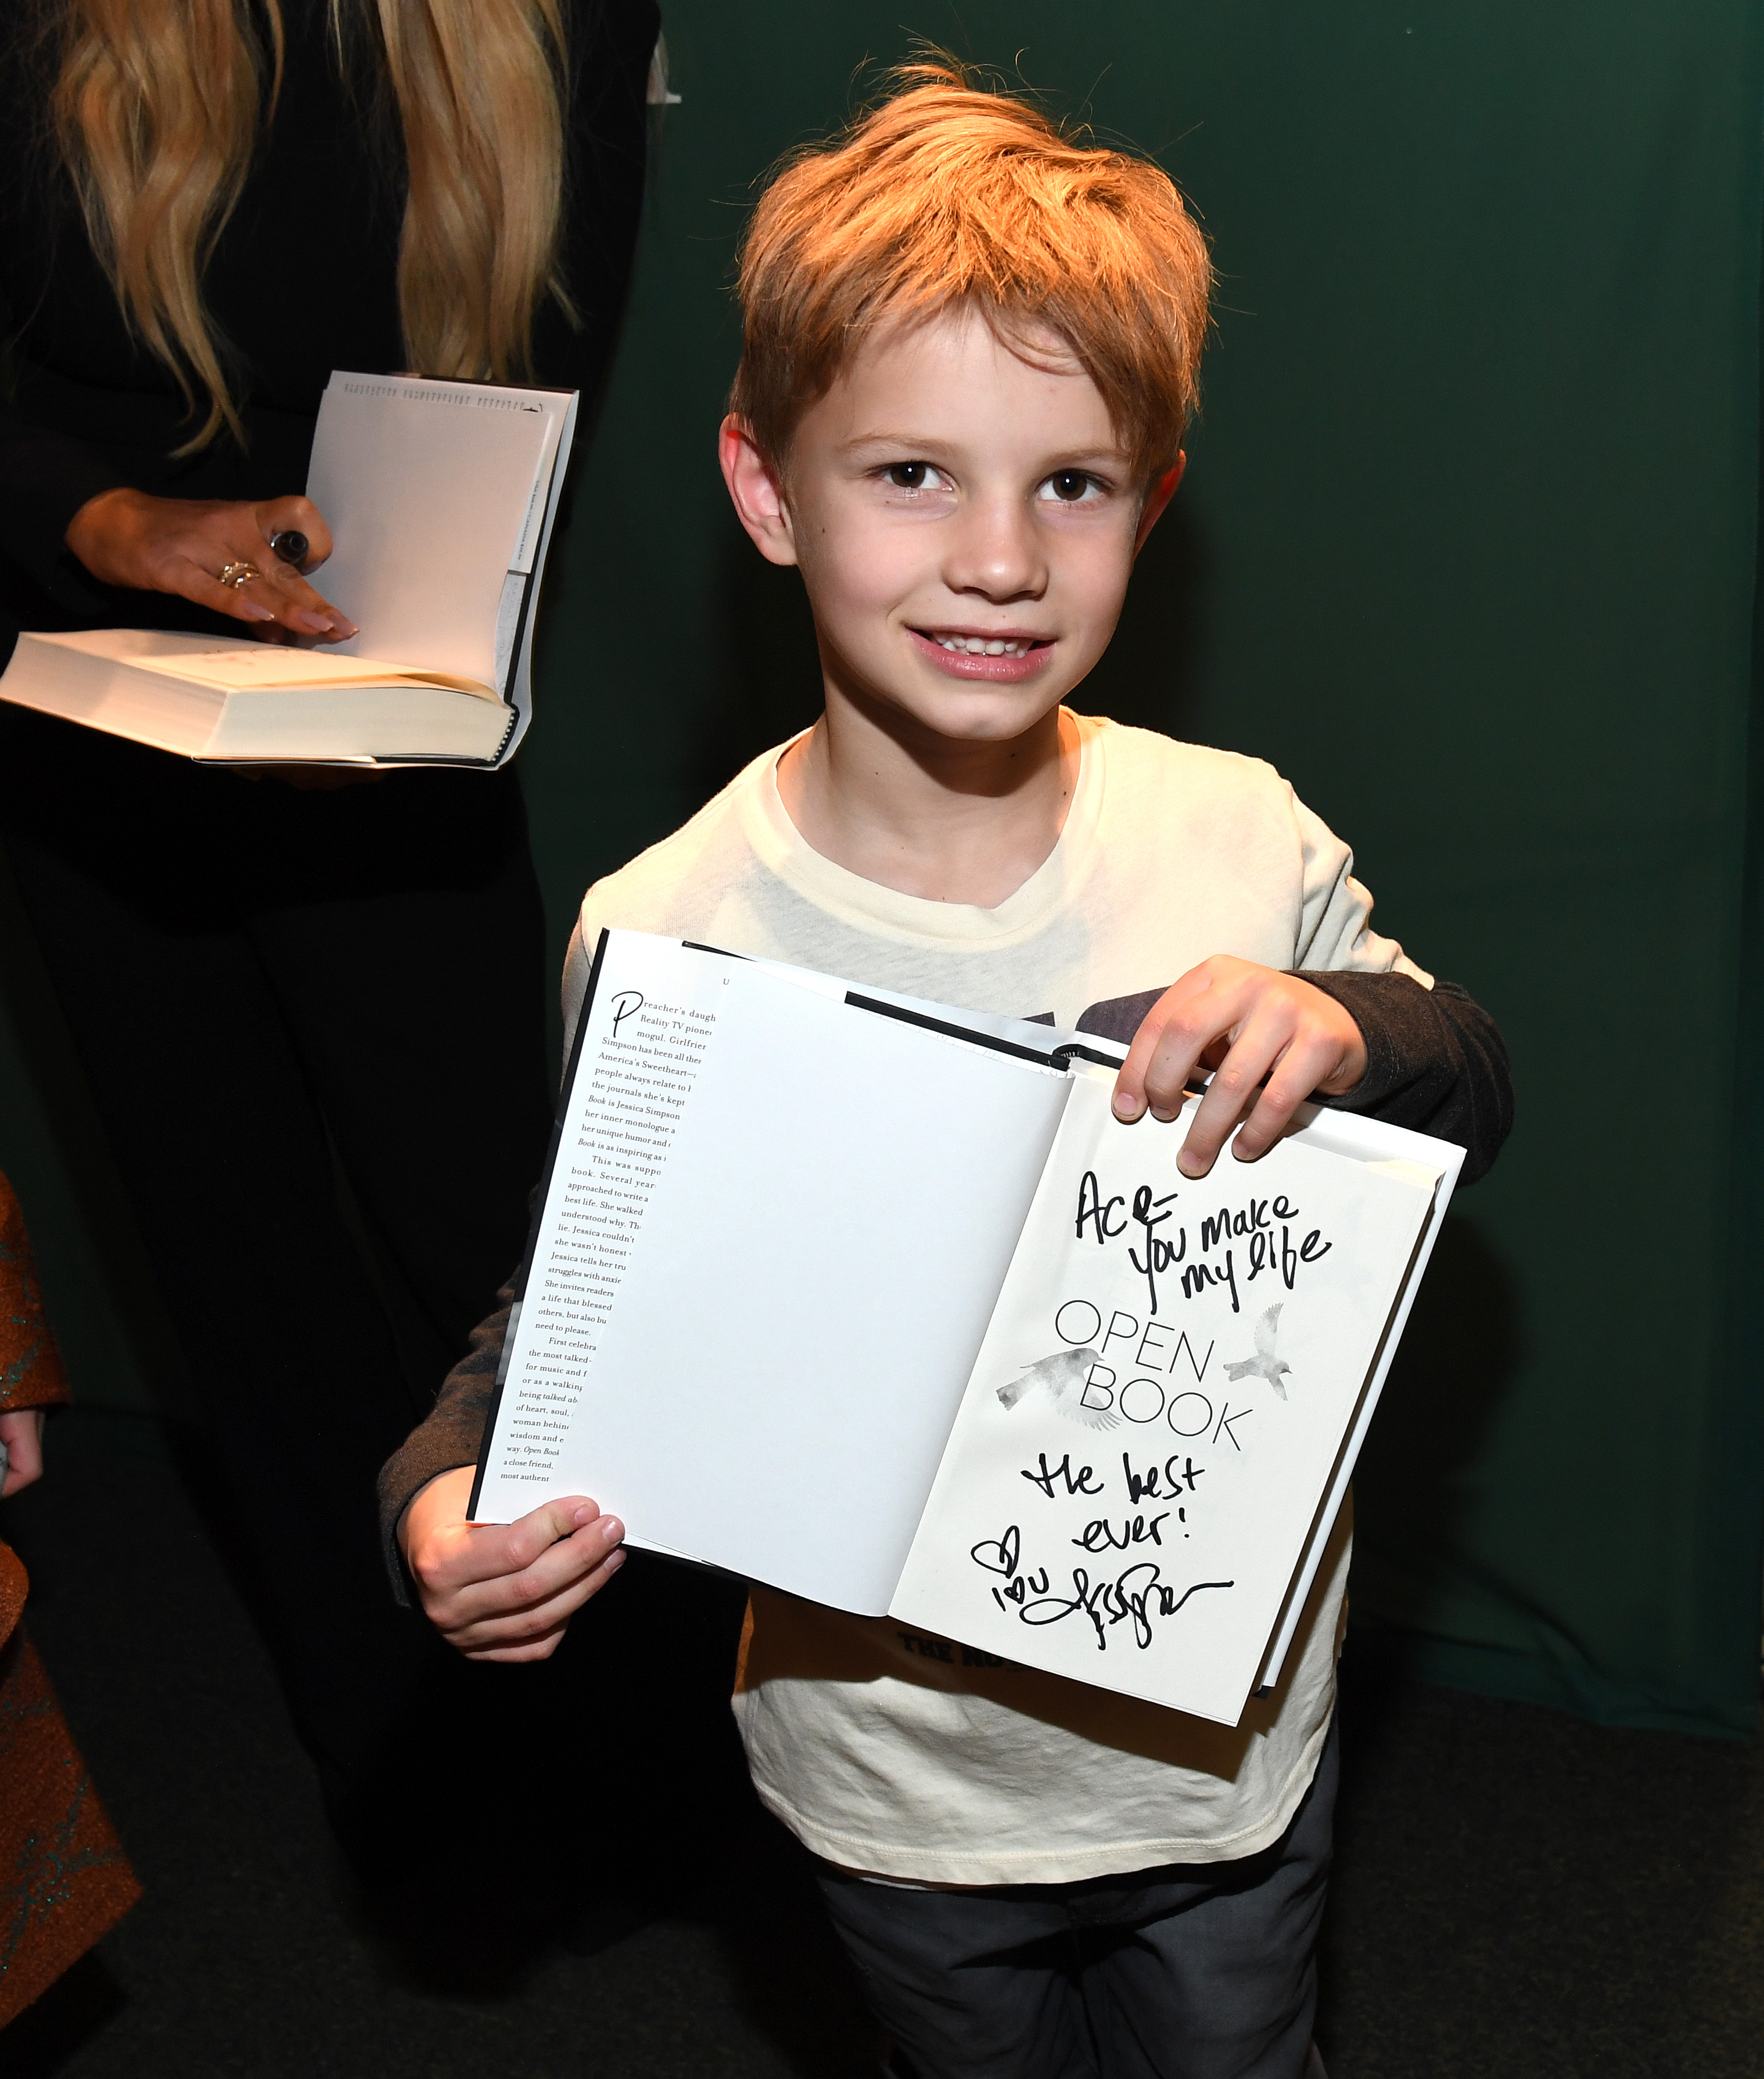 U
Preacher's daugh
Reality TV pione
mogul. Girlfrier
Simpson has been all ther
America's Sweetheart—
people always relate to
the journals she's kept
Book is Jessica Simpson
her inner monologue a
her unique humor and
Book is as inspiring as
This was suppo
book. Several year
approached to write a
best life. She walked
understood why. Th
lie. Jessica couldn't
she wasn't honest
Jessica tells her tru
struggles with anxie
She invites readers
a life that blessed
others, but also bu
need to please.
First celebra
the most talked-
for music and f
or as a walking
being talked ab
of heart, soul,
woman behin
wisdom and e
way. Open Book
a close friend,
most authent
Ace
you make
my life
OPEN
BOOK
the best
ever!
I ♡ U
THE NO